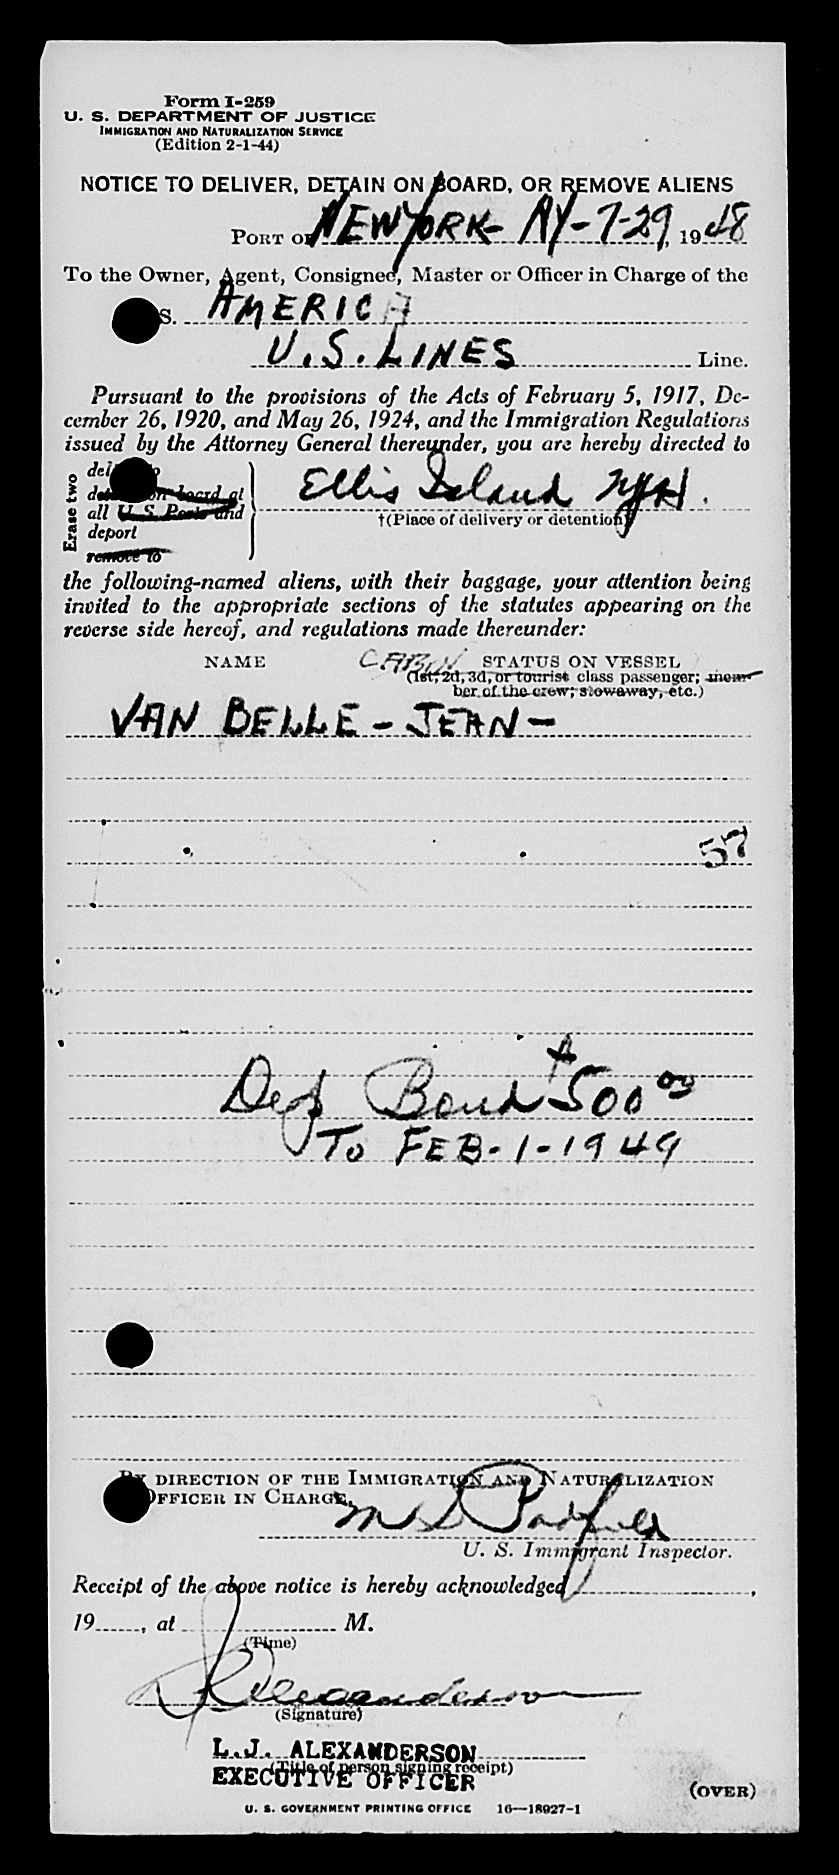 Form I-259
U. S. DEPARTMENT OF JUSTICE
IMMIGRATION AND NATURALIZATION SERVICE
(Edition 2-1-44)
NOTICE TO DELIVER, DETAIN ON BOARD, OR REMOVE ALIENS
PORT OF NEW YORK- NY-7-29, 1948
To the Owner, Agent, Consignee, Master or Officer in Charge of the
S. AMERICA
U.S. LINES Line.
Pursuant to the provisions of the Acts of February 5, 1917, De-
cember 26, 1920, and May 26, 1924, and the Immigration Regulations
issued by the Attorney General thereunder, you are hereby directed to
Erase two
on board at
all U. S. Ports and
deport
remove to
Ellis Island NYH.
†(Place of delivery or detention)
the following-named aliens, with their baggage, your attention being
invited to the appropriate sections of the statutes appearing on the
reverse side hereof, and regulations made thereunder:
NAME CABIN STATUS ON VESSEL
(1st, 2d, 3d, or tourist class passenger; mem-
ber of the crew; stowaway, etc.)
VAN BELLE - JEAN -
57
Dep Bond $500 00
TO FEB-1-1949
BY DIRECTION OF THE IMMIGRATION AND NATURALIZATION
OFFICER IN CHARGE,
U. S. Immigrant Inspector.
Receipt of the above notice is hereby acknowledged ,
19 , at M.
(Time)
(Signature)
L.J. ALEXANDERSON
(Title of person signing receipt)
EXECUTIVE OFFICER
(OVER)
U. S. GOVERNMENT PRINTING OFFICE 16—18927-1